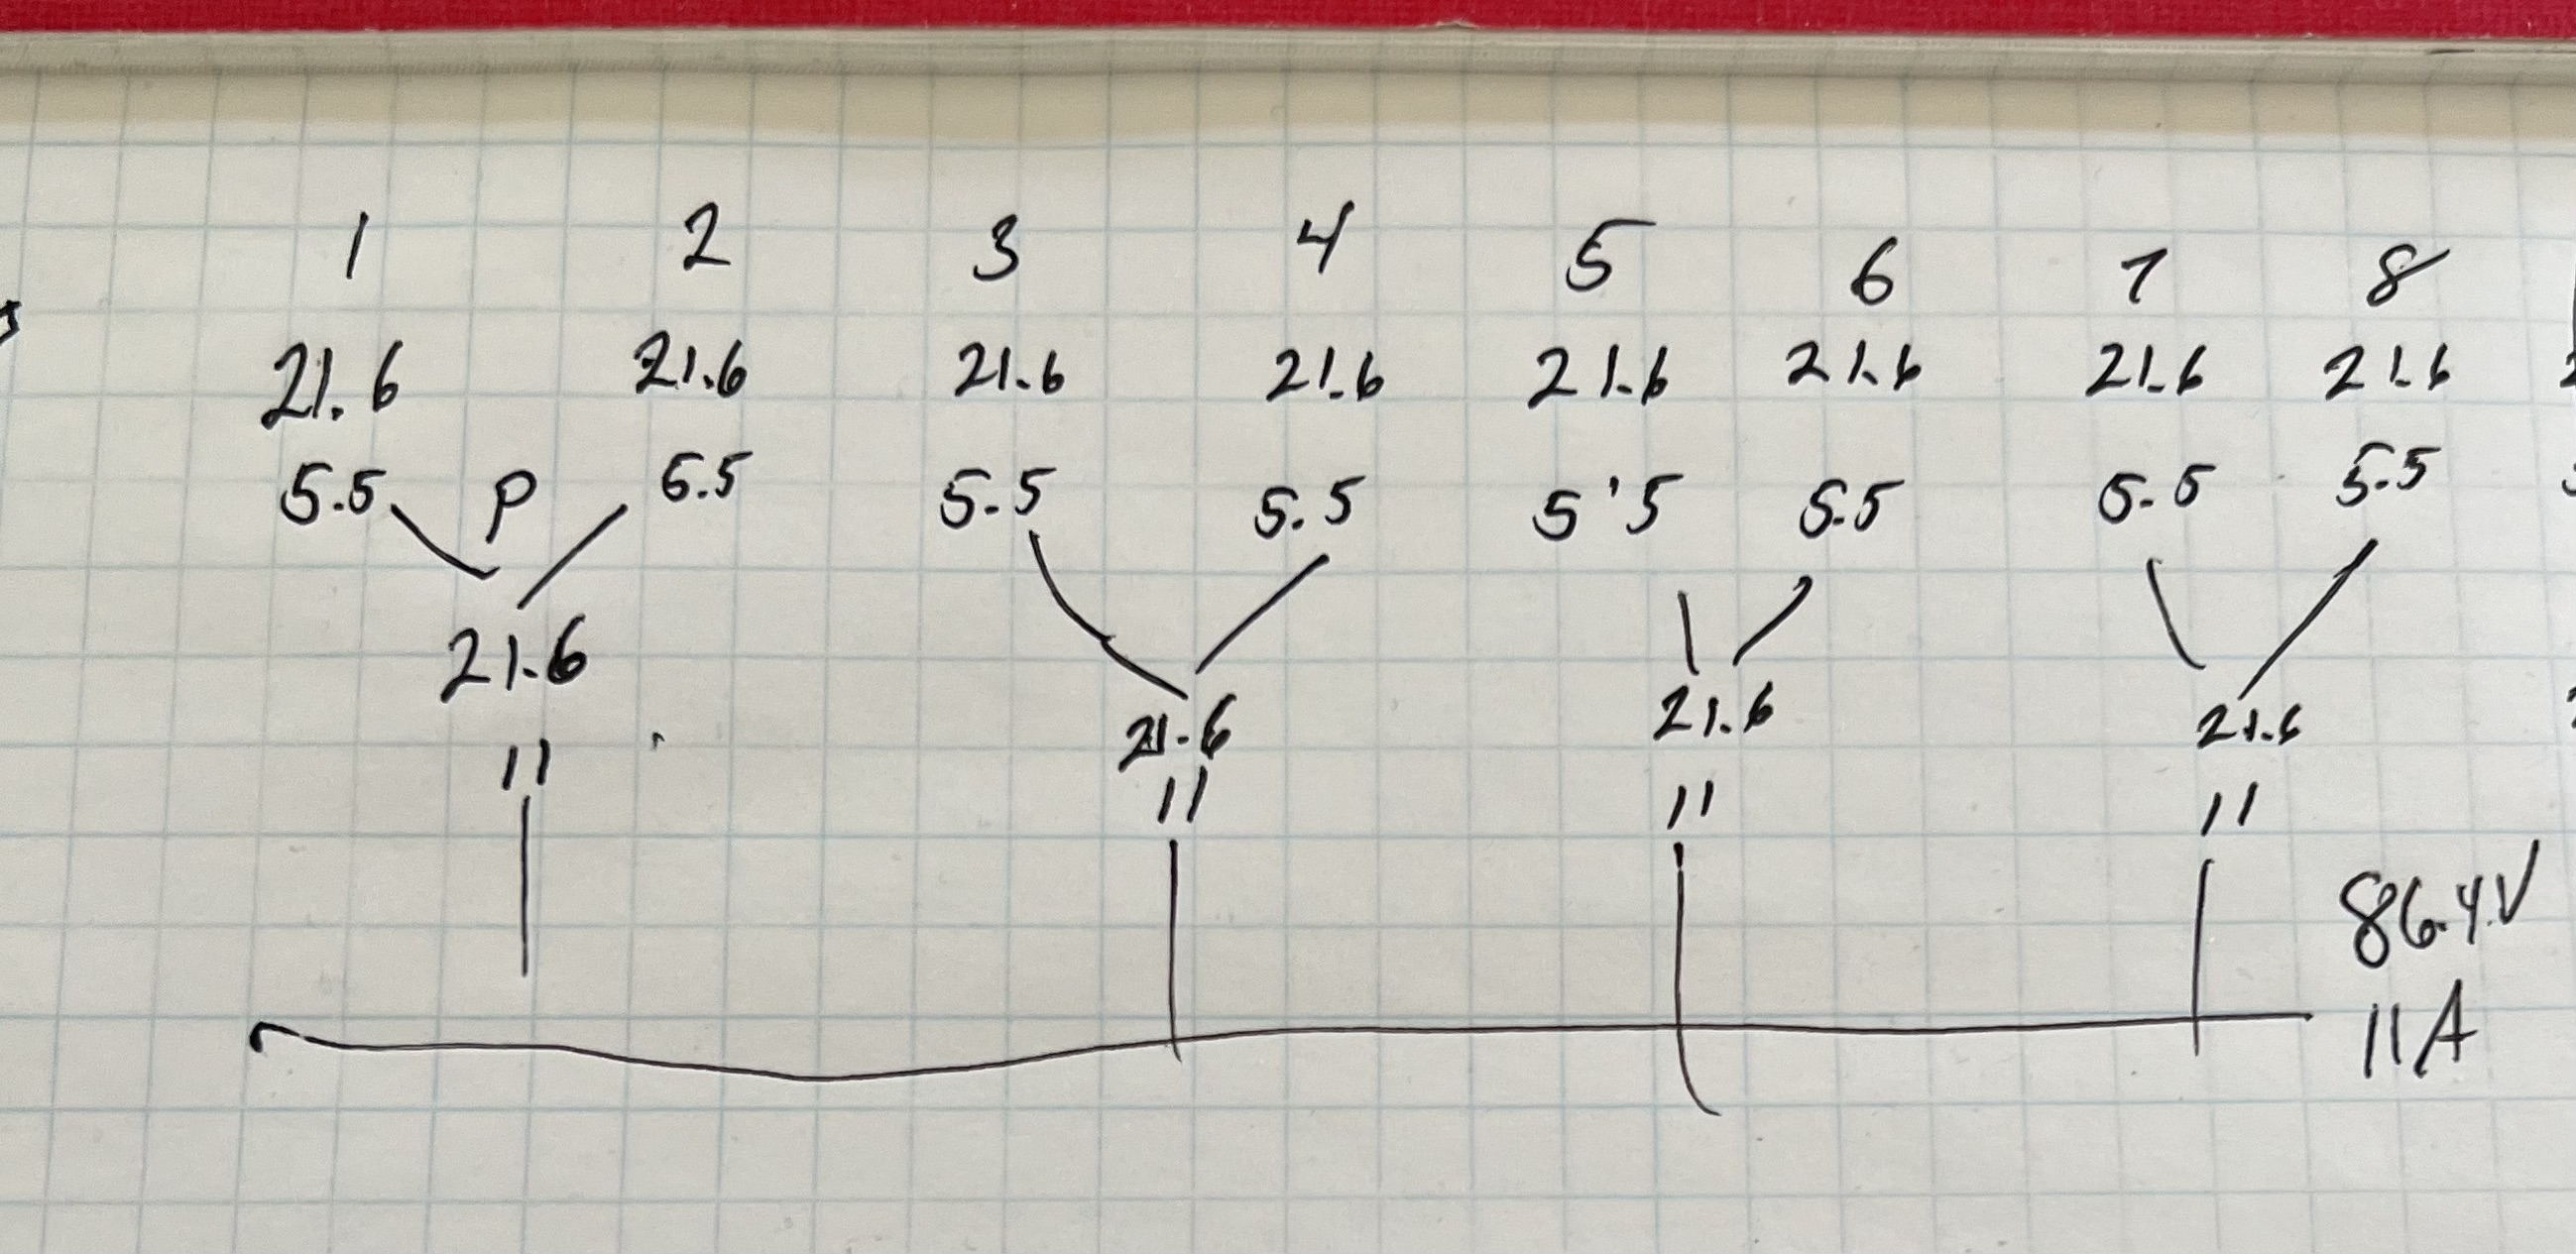 1 2 3 4 5 6 7 8
21.6 21.6 21.6 21.6 21.6 21.6 21.6 21.6
5.5 P 5.5 5.5 5.5 5'5 5.5 5.5 5.5
21.6 21.6 21.6 21.6
11 11 11 11
86.4V
11A